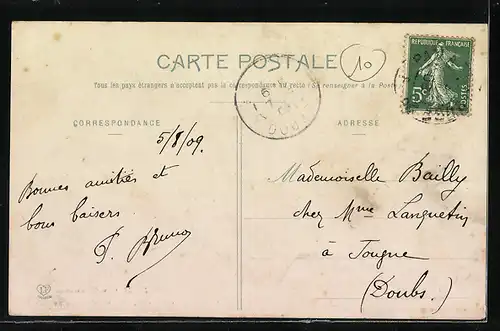 CARTE POSTALE
10
REPUBLIQUE FRANÇAISE
5c
POSTES
Tous les pays étrangers n'acceptent pas la correspondance au recto (Se renseigner à la Poste)
DOUBS
CORRESPONDANCE
ADRESSE
5/8/09.
Bonnes amitiés et
bons baisers
Mademoiselle Bailly
chez Mme Languetin
à Jougne
(Doubs.)